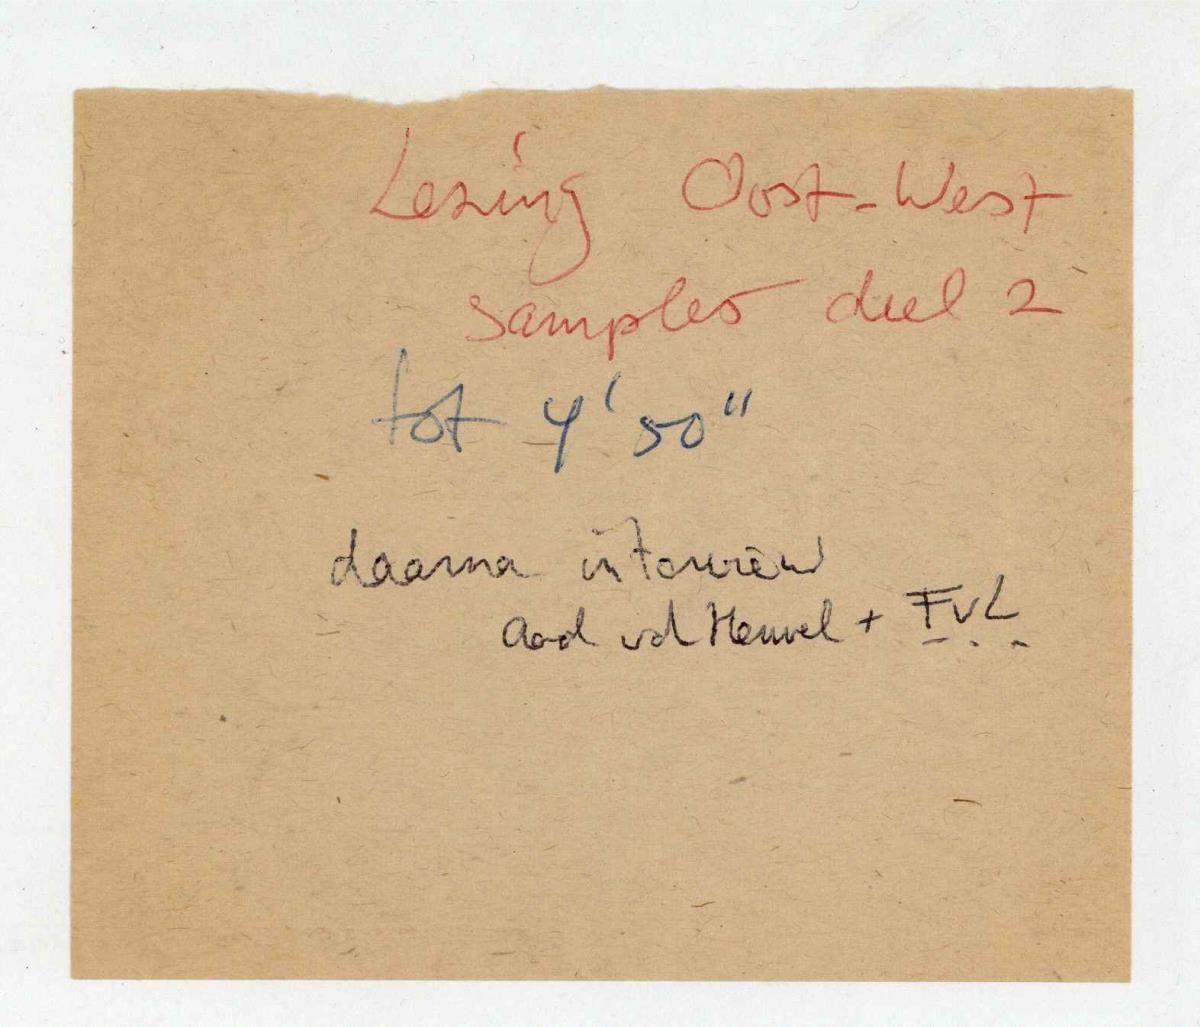 Lezing Oost-West
samples deel 2
tot 4'50"
daarna interview
Aad vd Heuvel + FvL